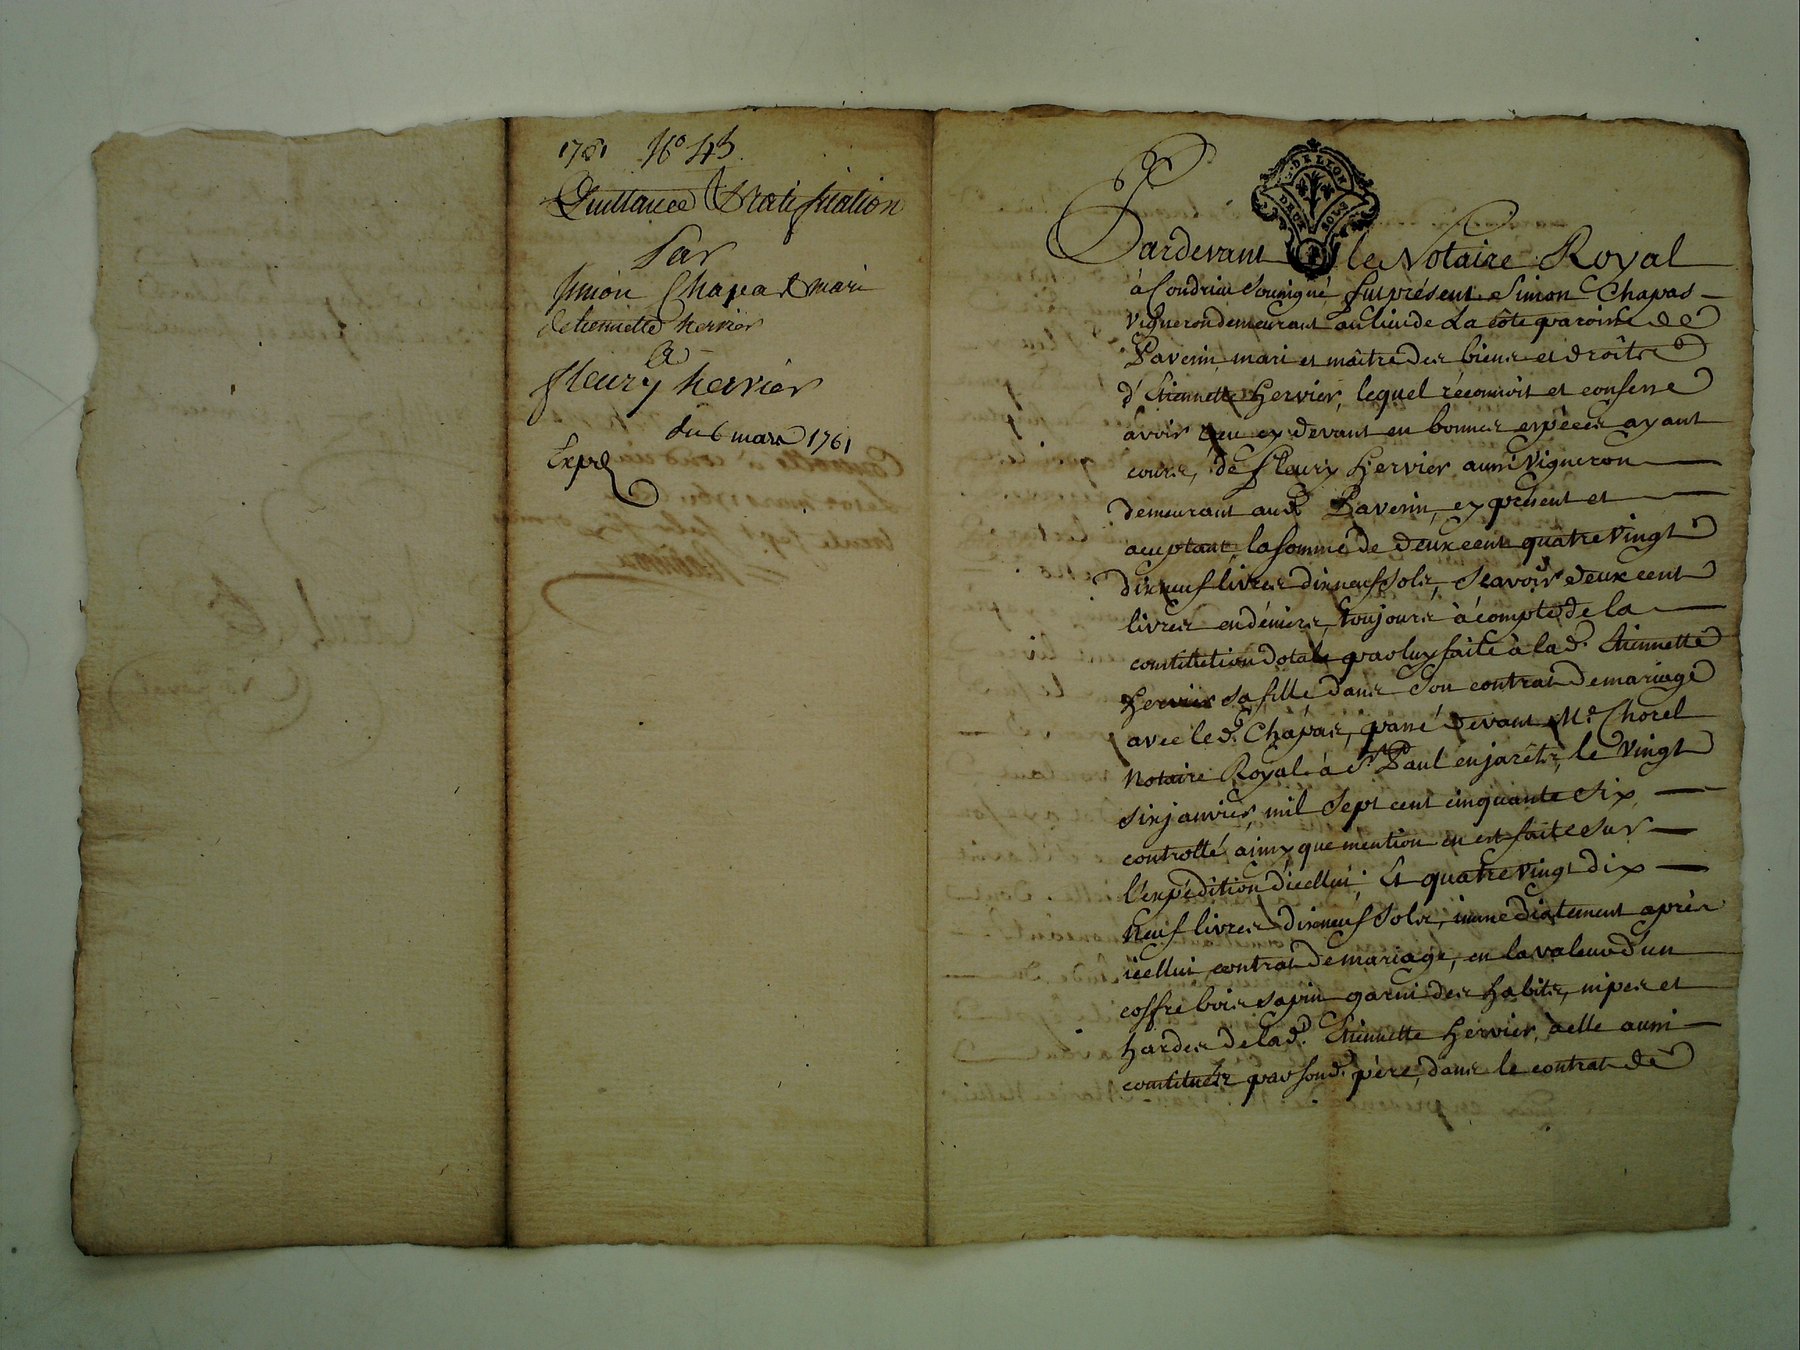 1761 N.o 45
Quittance & ratification
Par
Simon Chapas mari
detiennette hervier
A
fleury hervier
du 6 mars 1761
Exp.é
DE LYON
DEUX SOLS
Pardevant le Notaire Royal
à Condrieu soussigné fut présent Simon Chapas
vigneron demeurant au lieu de La côte paroisse de
Pavesin, mari et maître des biens et droits
d'Etiennette Hervier, lequel réconnoit et confesse
avoir reçu cy devant en bonnes espèces ayant
cours, de fleury Hervier aussi Vigneron
demeurant aud. Pavesin, cy présent et
acceptant, la somme de deux cent quatre vingt
dixneuf livres dixneuf sols, sçavoir deux cent
livres en déniers, toujours à compte de la
constitution dotale par luy faite à lad. Etiennette
Hervier sa fille dans son contrat de mariage
avec led. Chapas, passé devant M.e Chorel
Notaire Royal à S.t Paul en jarêts, le vingt
six janvier, mil sept cent cinquante six,
controllé ainsy que mention en est faite sur
l'expédition d'icellui; Et quatre vingt dix
neuf livres dixneuf sols, immediatement après
icellui contrat de mariage, en la valeur d'un
coffre bois sapin garni des habits, nipes et
hardes de lad. Etiennette Hervier, à elle aussi
constitués par sond. père, dans le contrat de